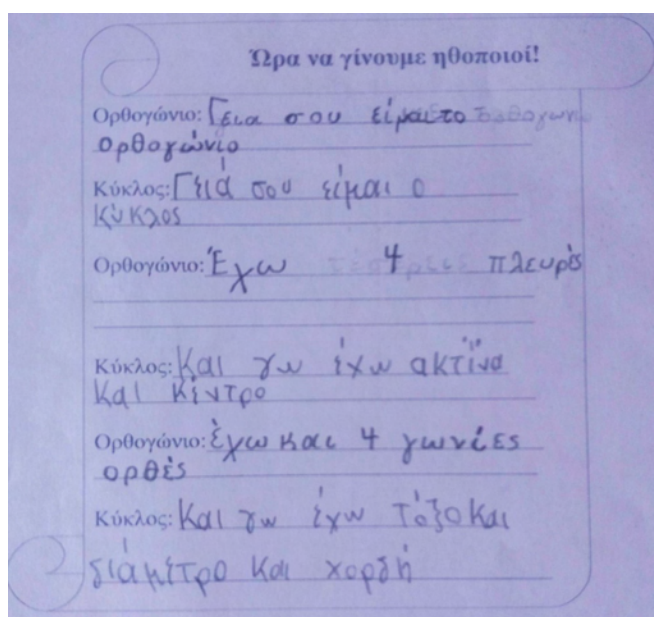 Ώρα να γίνουμε ηθοποιοί!
Ορθογώνιο: Γεια σου είμαι το
ορθογώνιο
Κύκλος: Γειά σου είμαι ο
κύκλος
Ορθογώνιο: Έχω 4 πλευρές
Κύκλος: Και γω έχω ακτίνα
και κέντρο
Ορθογώνιο: έχω και 4 γωνίες
ορθές
Κύκλος: Και γω έχω τόξο και
διάμετρο και χορδή